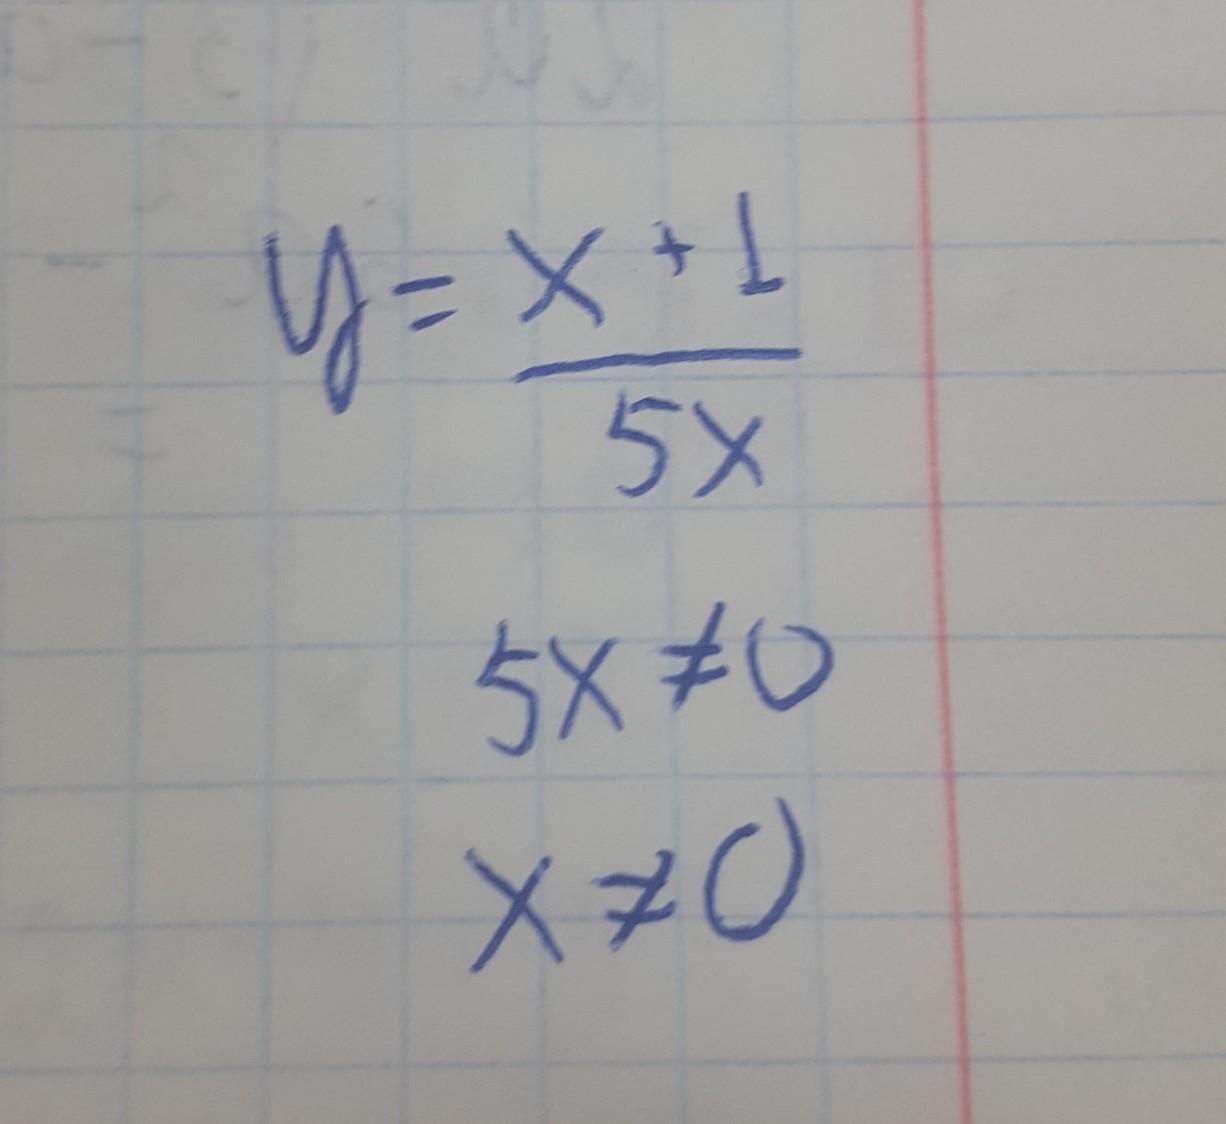 y = x + 1
5x
5x ≠ 0
x ≠ 0